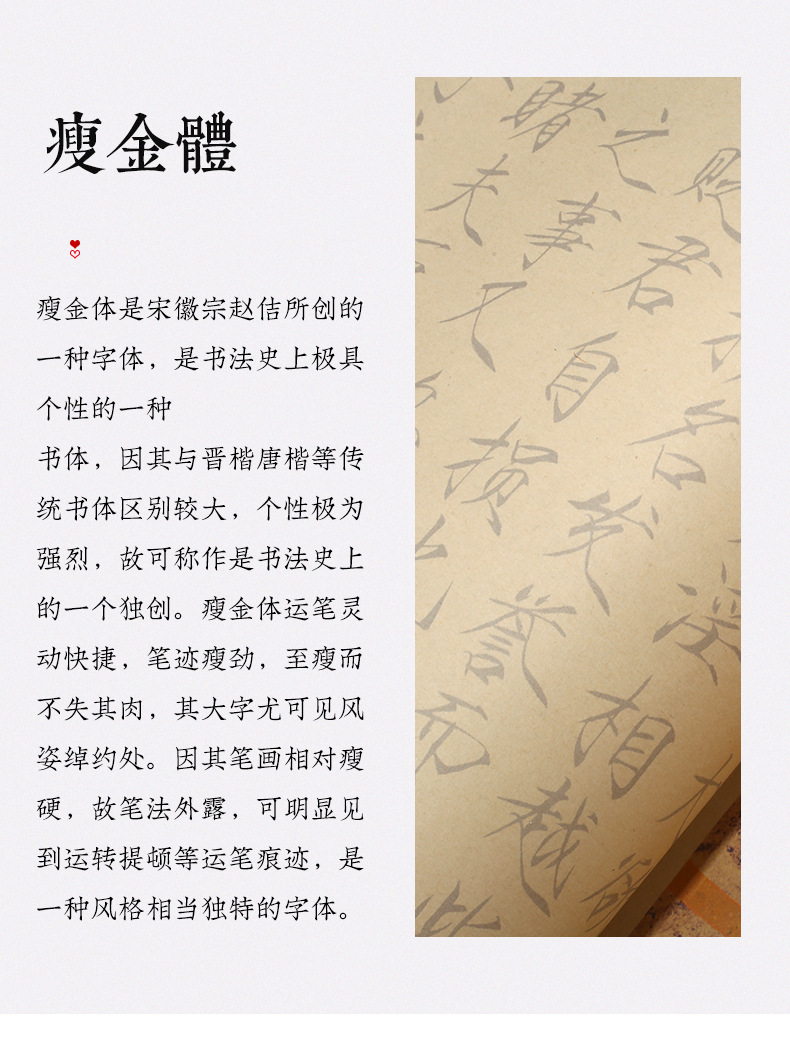 瘦金體
瘦金体是宋徽宗赵佶所创的
一种字体，是书法史上极具
个性的一种
书体，因其与晋楷唐楷等传
统书体区别较大，个性极为
强烈，故可称作是书法史上
的一个独创。瘦金体运笔灵
动快捷，笔迹瘦劲，至瘦而
不失其肉，其大字尤可见风
姿绰约处。因其笔画相对瘦
硬，故笔法外露，可明显见
到运转提顿等运笔痕迹，是
一种风格相当独特的字体。
睹
之
夫
事
君
自
名
損
誉
相
越